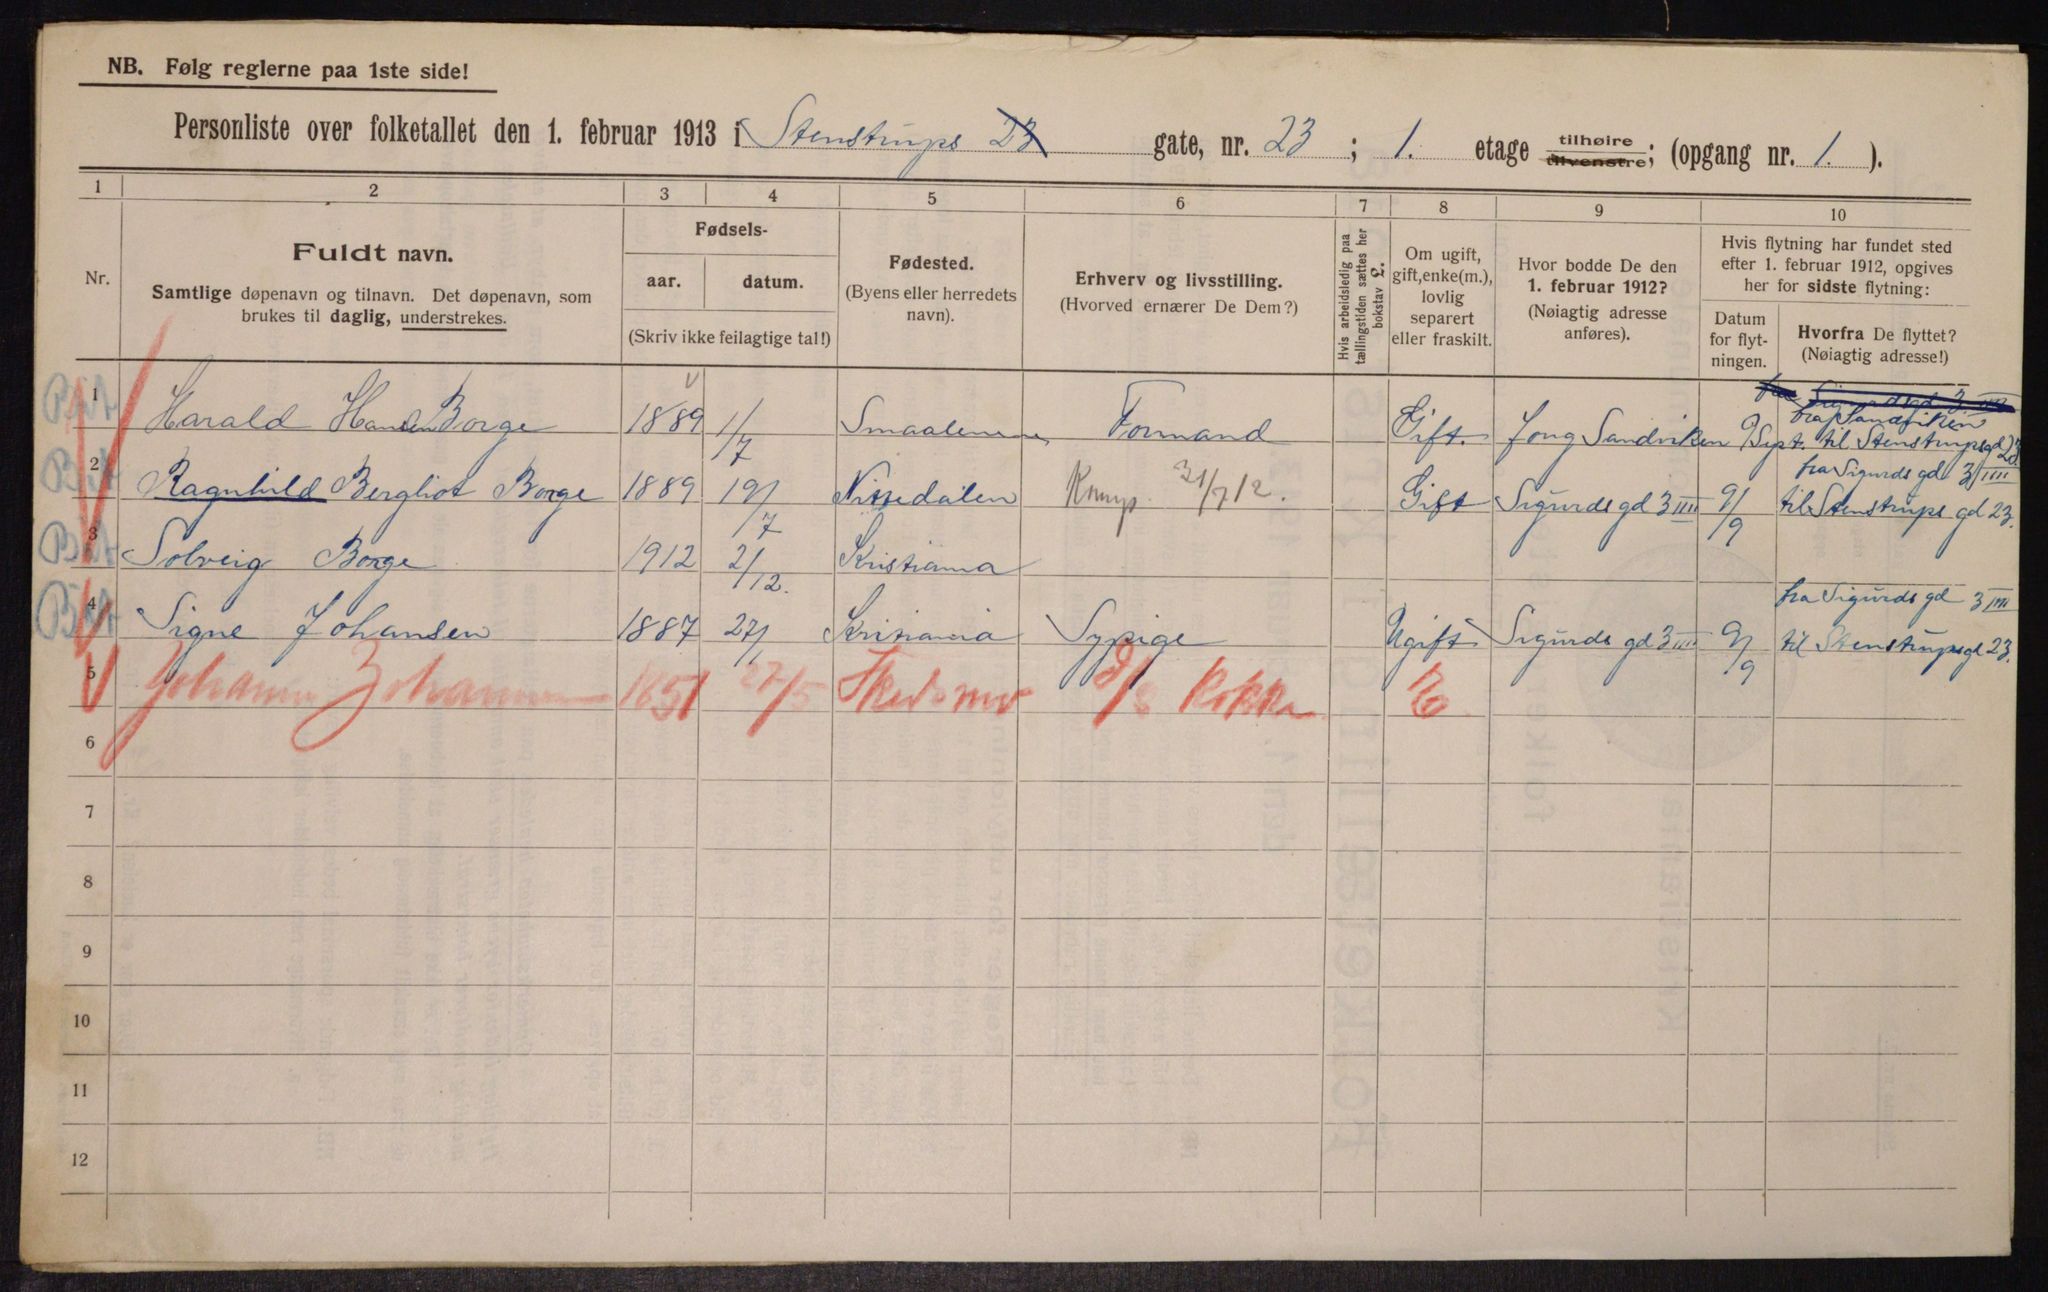 NB. Følg reglerne paa 1ste side!
Personliste over folketallet den 1. februar 1913 i Stenstrups 23 gate, nr. 23 ; 1. etage tilhøire tilvenstre; (opgang nr. 1. ).
1 2 3 4 5 6 7 8 9 10
Nr.
Fuldt navn.
Samtlige døpenavn og tilnavn. Det døpenavn, som
brukes til daglig, understrekes.
Fødsels-
aar. datum.
(Skriv ikke feilagtige tal!)
Fødested.
(Byens eller herredets
navn).
Erhverv og livsstilling.
(Hvorved ernærer De Dem?)
Hvis arbeidsledig paa
tællingstiden sættes her
bokstav L.
Om ugift,
gift, enke(m.),
lovlig
separert
eller fraskilt.
Hvor bodde De den
1. februar 1912?
(Nøiagtig adresse
anføres).
Hvis flytning har fundet sted
efter 1. februar 1912, opgives
her for sidste flytning:
Datum
for flyt-
ningen.
Hvorfra De flyttet?
(Nøiagtig adresse!)
fra Sigurds gd 3 IIII
fra Sandviken
1 Harald Hansen Borge 1889 1/7 Smaalenene Formand Gift. Jong Sandviken 9/Sept. til Stenstrupsgd 23.
fra Sigurds gd 3 IIII
2 Ragnhild Bergliot Borge 1889 19/7 Nittedalen 31/7 12. Gift Sigurds gd 3 IIII 9/9 til Stenstrups gd 23.
3 Solveig Borge 1912 2/12. Kristiania
fra Sigurds gd 3 IIII
4 Signe Johansen 1887 27/1 Kristiania Sypige Ugift Sigurds gd 3 IIII 9/9 til Stenstrupsgd 23.
5 Johanne Johannesen 1851 27/5 Skedsmo Kokke E
6
7
8
9
10
11
12